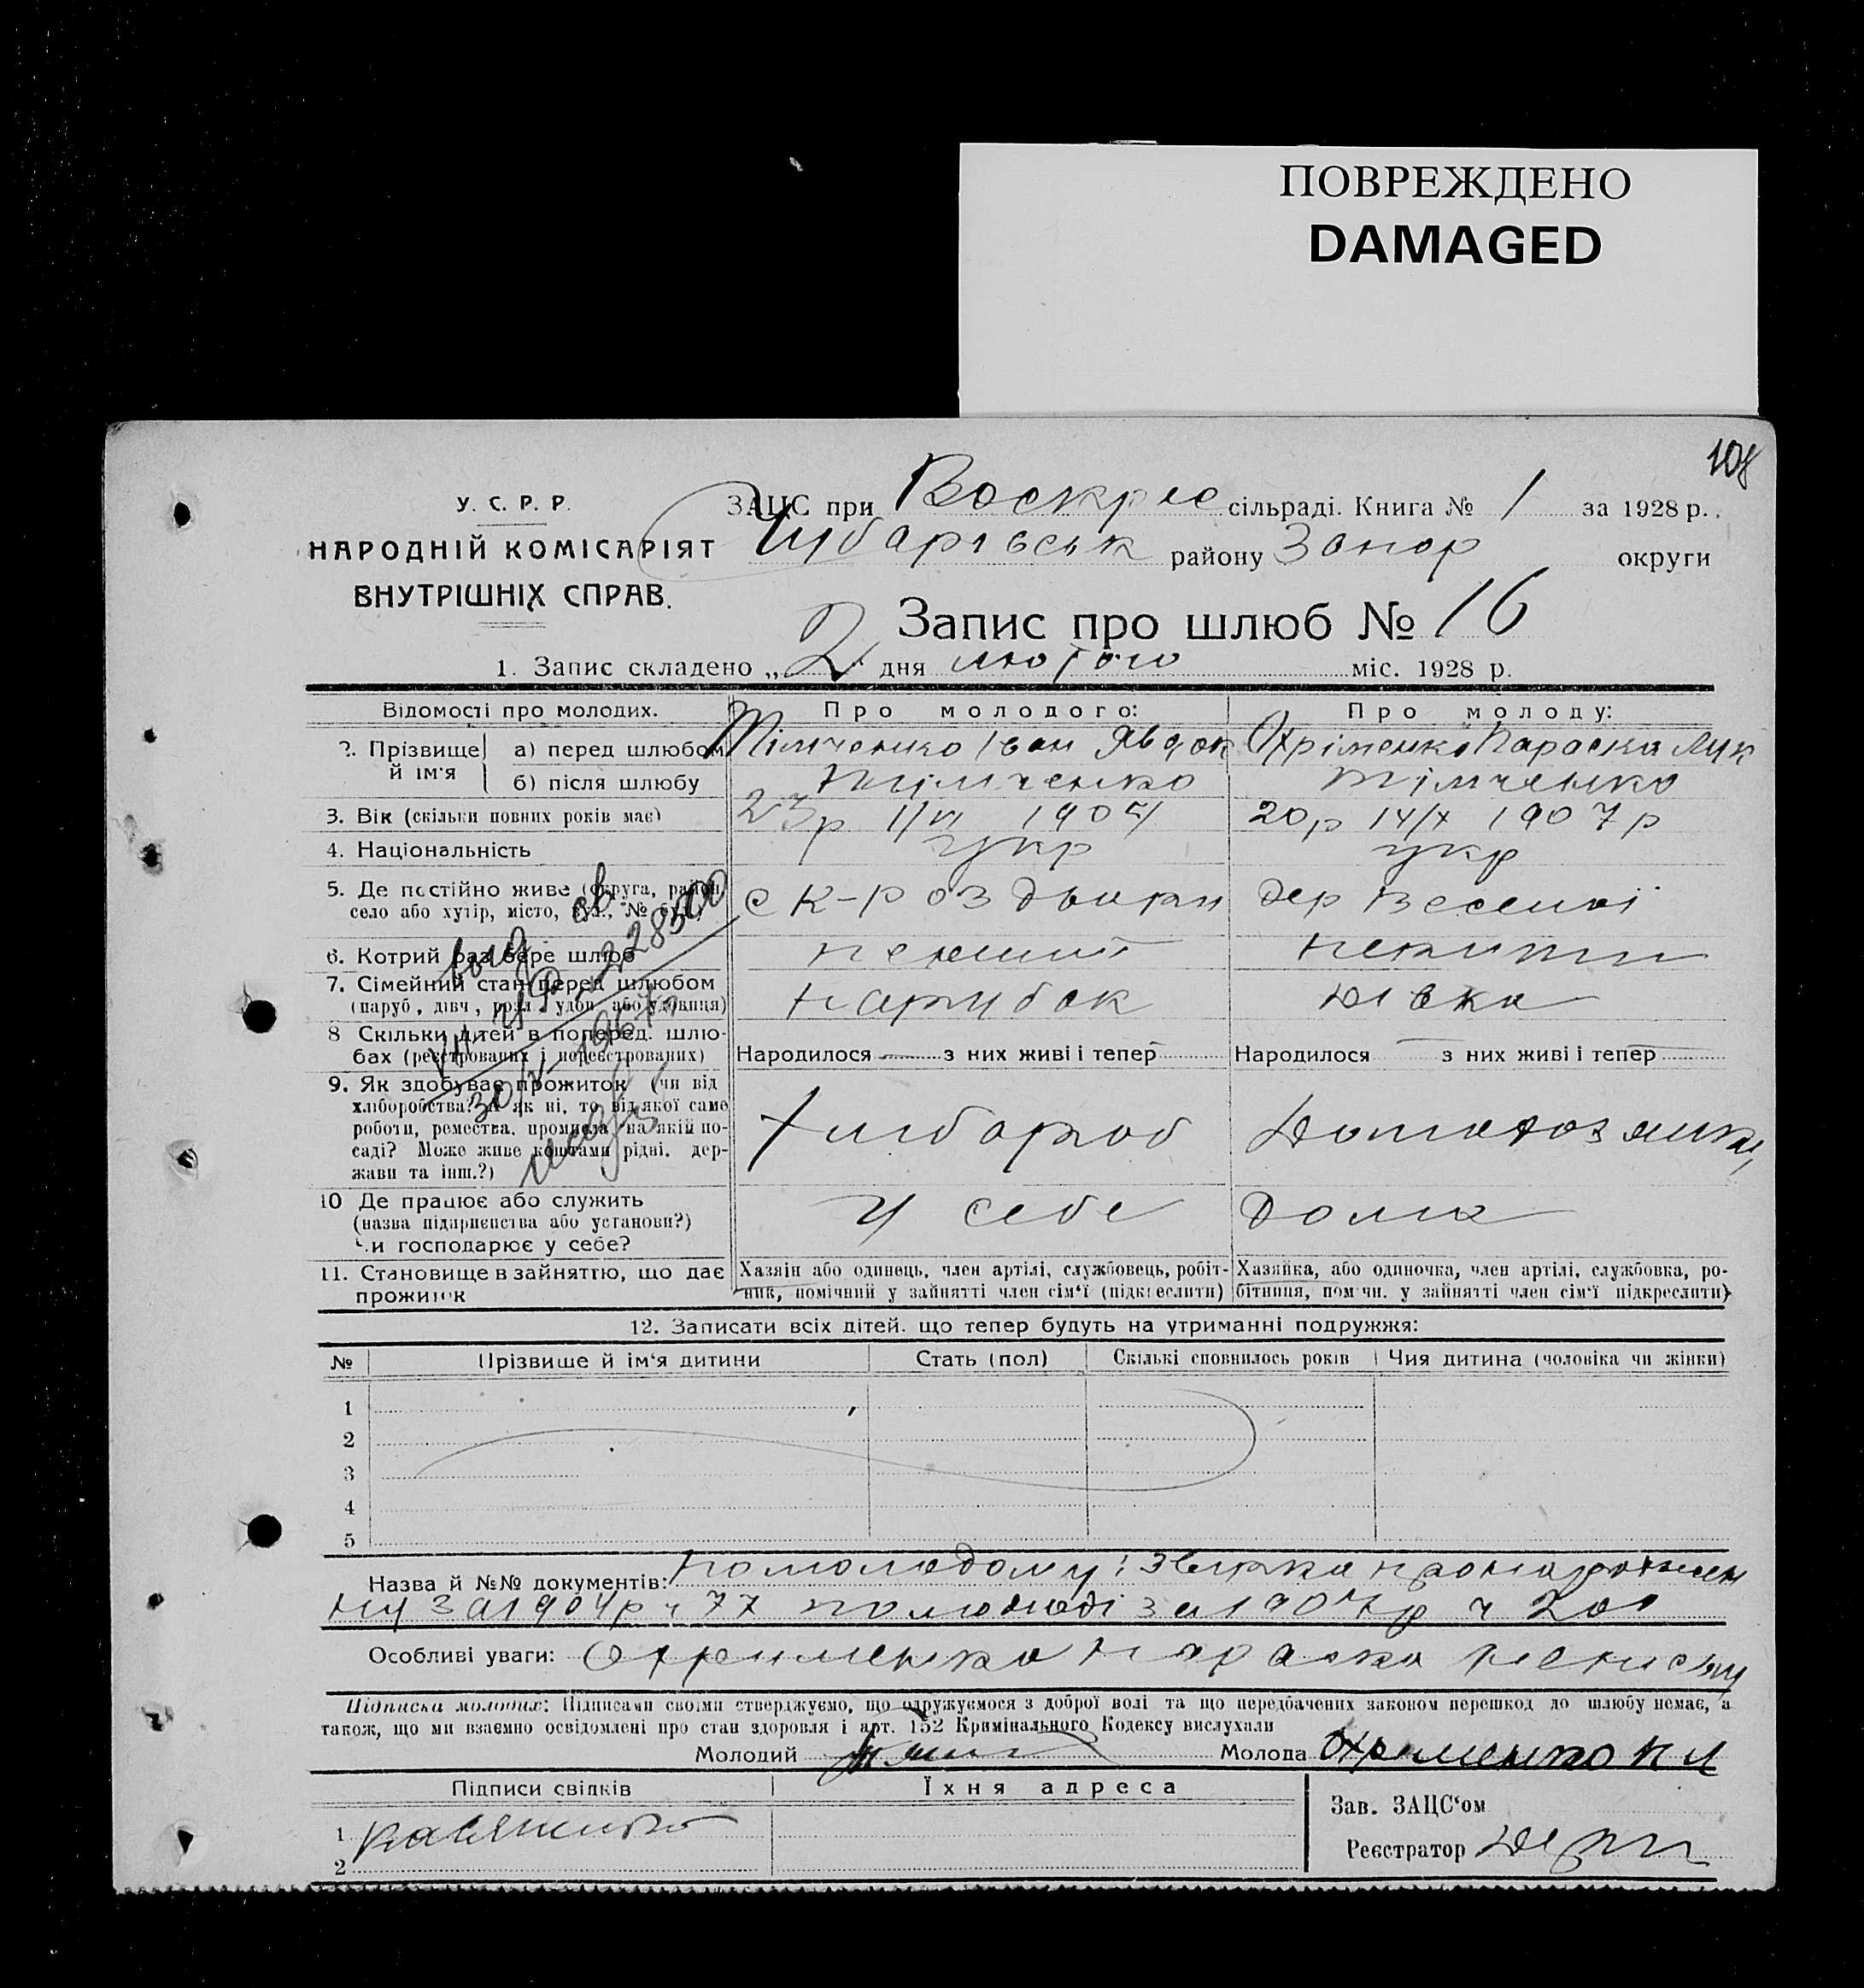 ПОВРЕЖДЕНО
DAMAGED
108
У. С. Р. Р.
НАРОДНІЙ КОМІСАРІЯТ
ВНУТРІШНІХ СПРАВ.
ЗАЦС при Воскрес сільраді. Книга № 1 за 1928 р.
Чубарівськ району Запор округи
Запис про шлюб № 16
1. Запис складено „2" дня лютого міс. 1928 р.
Відомості про молодих. Про молодого: Про молоду:
2. Прізвище й ім'я а) перед шлюбом Тімченко Іван Явдок Охріменко Параска Лук
б) після шлюбу Тімченко Тімченко
3. Вік (скільки повних років має) 23 р 1/VI 1904 20 р 14/X 1907 р
4. Національність укр укр
5. Де постійно живе (округа, район, село або хутір, місто, вул., № буд.) с К-роздьори дер Веселої
6. Котрий раз бере шлюб перший
7. Сімейний стан перед шлюбом парубок дівка
(паруб., дівч., розл., удов. або удовиця)
8 Скільки дітей в поперед. шлю-
бах (реєстрованих і нереєстрованих) Народилося — з них живі і тепер Народилося — з них живі і тепер
9. Як здобуває прожиток (чи від
хліборобства? А як ні, то від якої саме
роботи, ремества, промисла, на якій по- Хлібороб
саді? Може живе коштами рідні, дер-
жави та інш.?)
10 Де працює або служить
(назва підприємства або установи?) у себе дома
Чи господарює у себе?
11. Становище в зайняттю, що дає Хазяїн або одинець, член артілі, службовець, робіт- Хазяйка, або одиночка, член артілі, службовка, ро-
прожиток ник, помічний у зайнятті член сім'ї (підкреслити) бітниця, помічн. у зайнятті член сім'ї підкреслити)
12. Записати всіх дітей, що тепер будуть на утриманні подружжя:
№ Прізвище й ім'я дитини Стать (пол) Скількі сповнилось років Чия дитина (чоловіка чи жінки)
1
2
3
4
5
Назва й №№ документів: по молодому: звірка про народжен
ня за 1904 р ч 77 по молоді за 1907 р ч
Особливі уваги: Охрименко Параска
Підписка молодих: Підписами своїми стверджуємо, що одружуємося з доброї волі та що передбачених законом перешкод до шлюбу немає, а
також, що ми взаємно освідомлені про стан здоровля і арт. 152 Кримінального Кодексу вислухали
Молодий Молода Охрименко П Л
Підписи свідків Їхня адреса
Зав. ЗАЦС'ом
1
Реєстратор
2